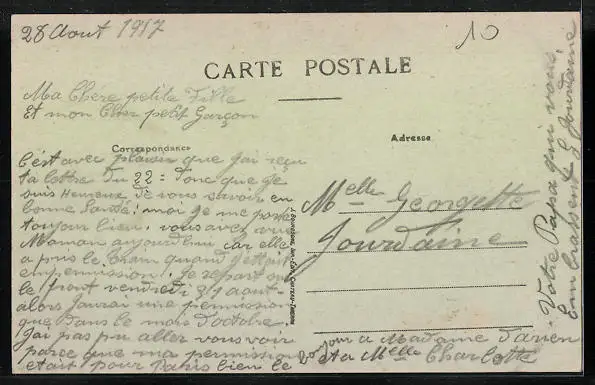 28 Aout 1917
10
CARTE POSTALE
Ma Chere petite Fille
Et mon Cher petit Garçon
Correspondance
Adresse
C'est avec plaisir que J'ai reçu
ta lettre du 22: donc que je
suis Heureux de vous savoir en
bonne Santé: moi Je me porte
toujour bien. vous avez vu
Maman aujourdhui car elle
a pris le train quand J'ettait
en permission. Je repart sur
le front vendredi 31 aout.
alors J'aurai une permission
que dans le mois d'octobre.
J'ai pas pu aller vous voir
parce que ma permission
etait pour Paris bien le
bonjour a Madame
et a Melle Charlotte
Votre Papa qui vous
Embrassent G Jourdaine
Melle Georgette
Jourdaine